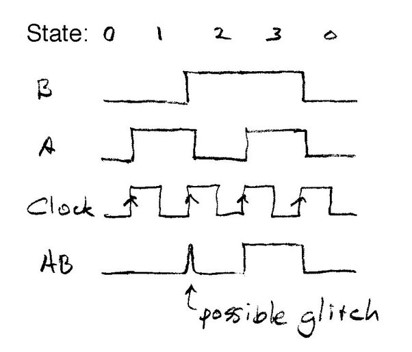 State: 0 1 2 3 0
B
A
Clock
AB
possible glitch